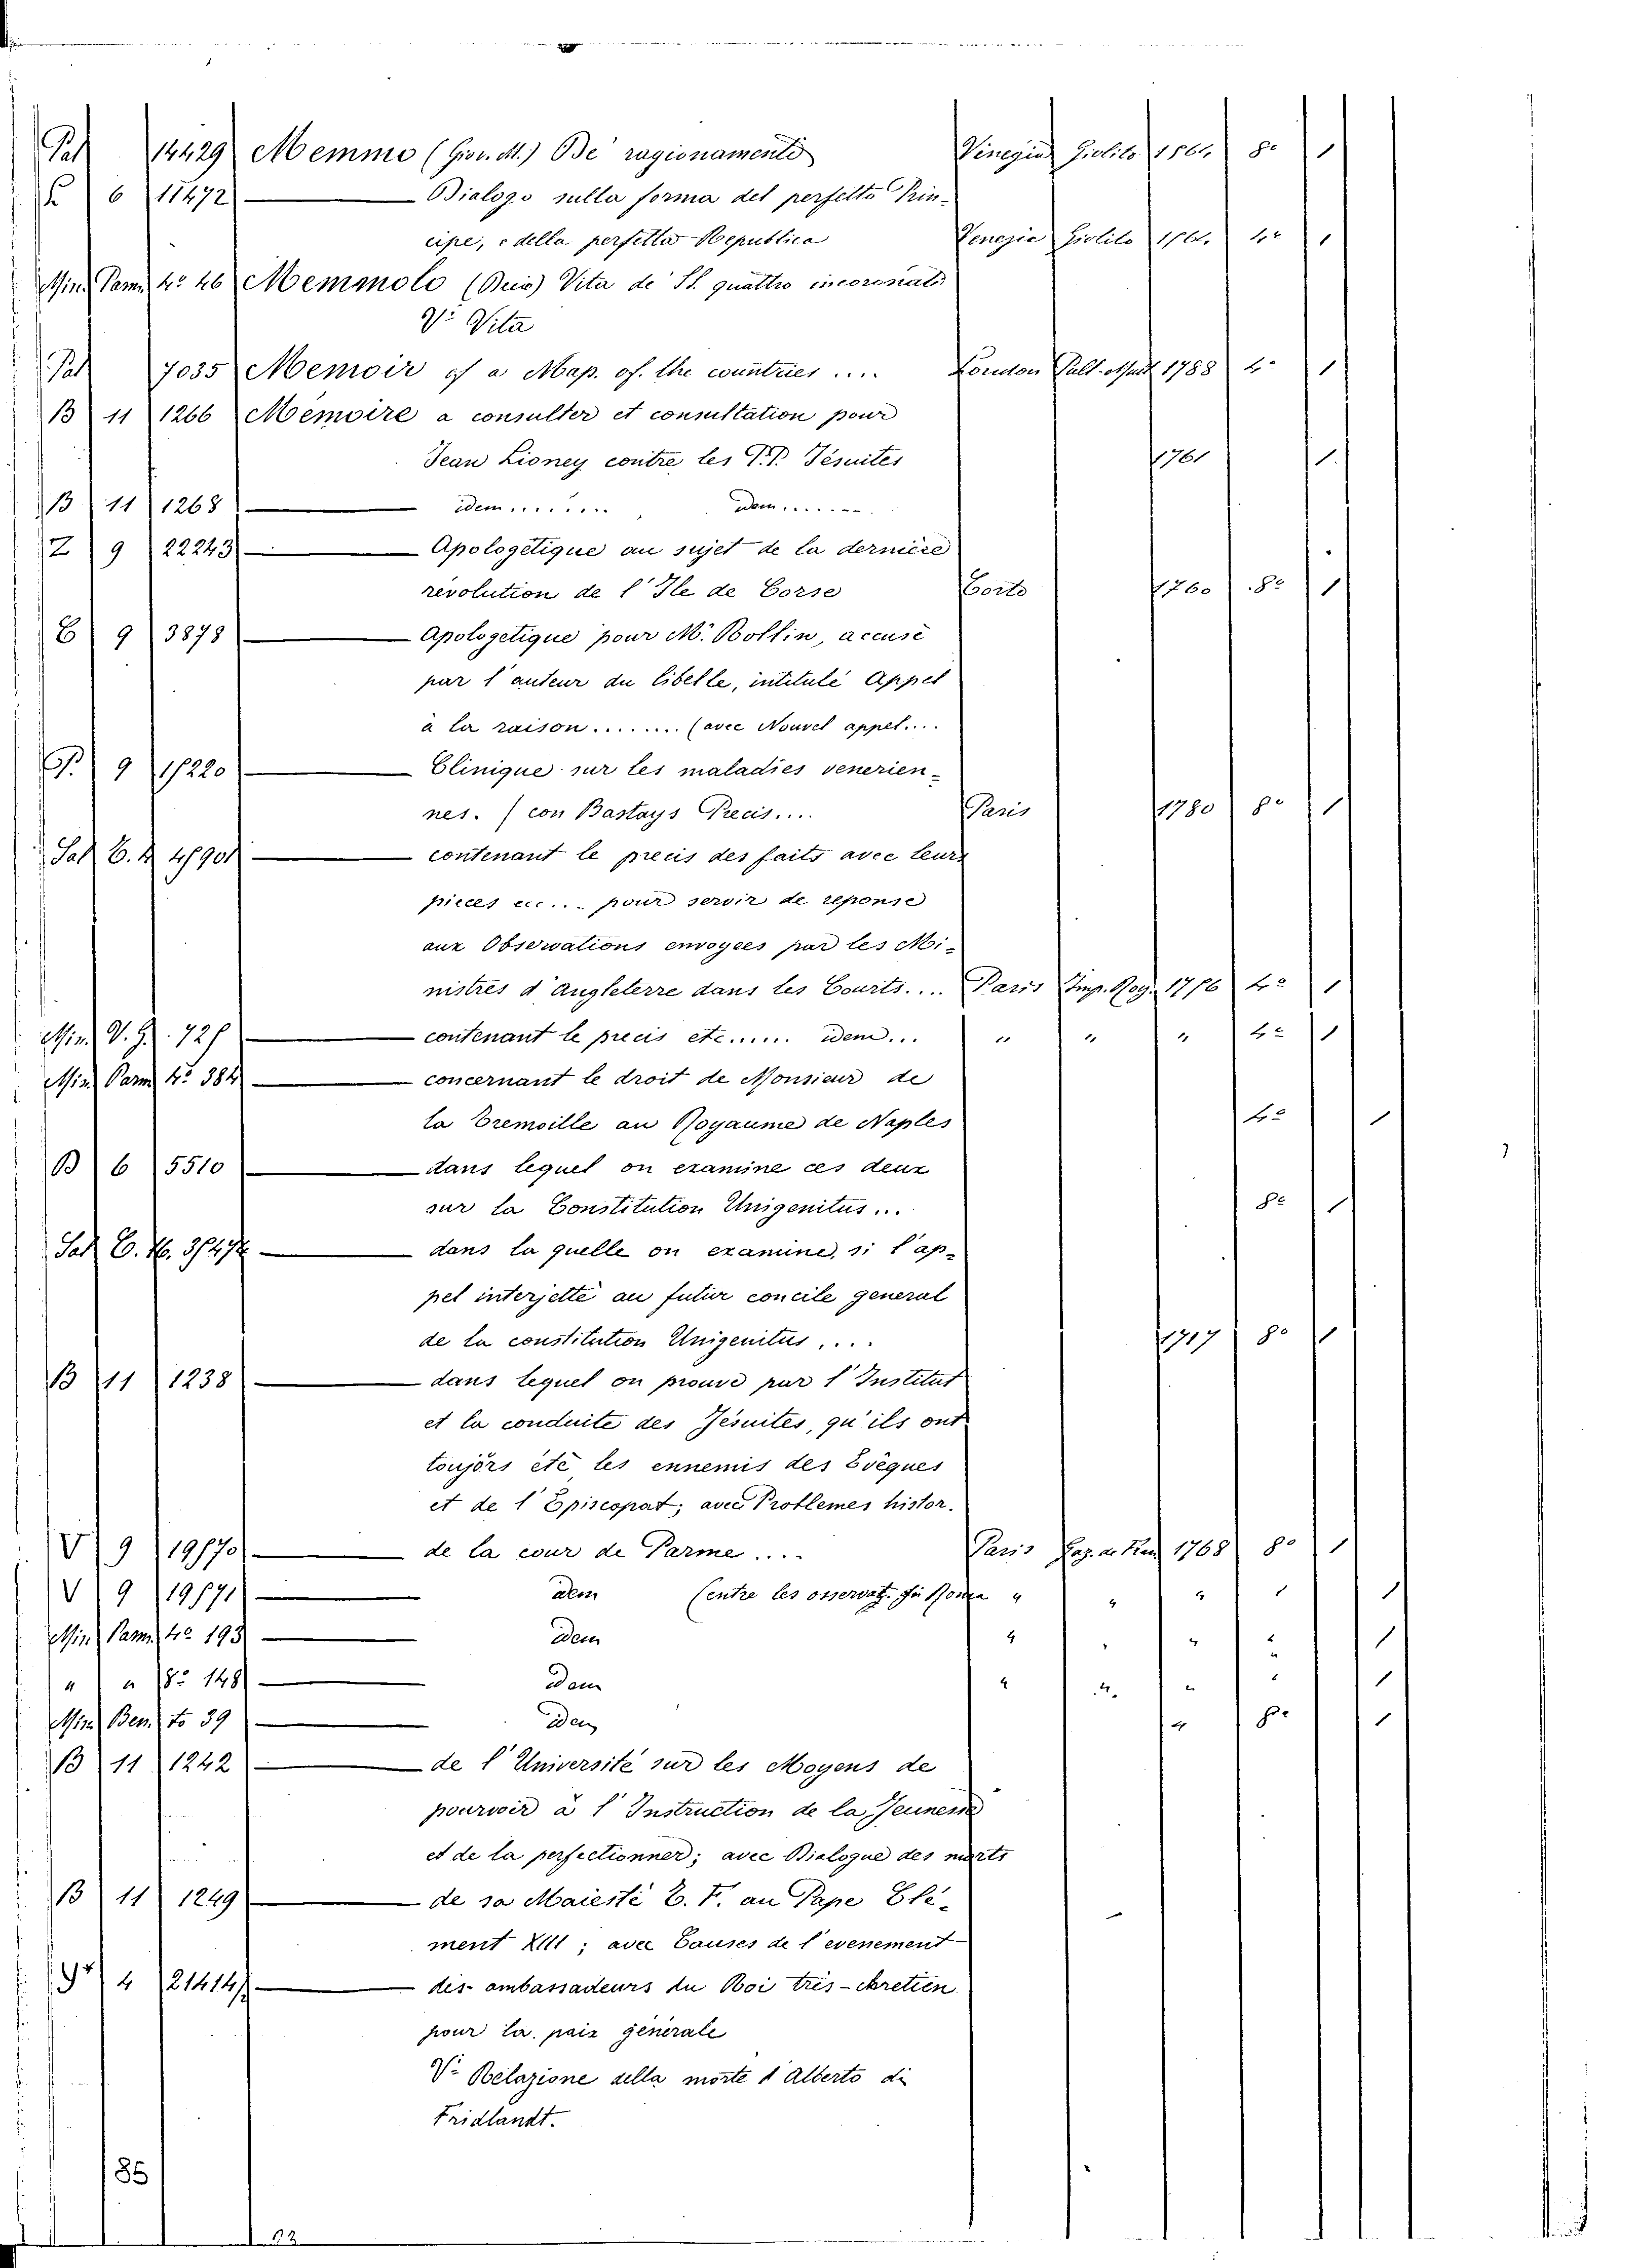 Pal 14429 Memmo (Giov. M.) De' ragionamenti Vinegia Giolito 1564 8o 1
6 11472 — Dialogo sulla forma del perfetto Prin-
cipe, e della perfetta Republica Venezia Giolito 4o 1
Min. Parm 4o 46 Memmolo (Decio) Vita de' St. quattro incoronati
Vo Vita
Pal 7035 Memoir of a Map. of. the countries .... London Pall-Mall 1788 4o 1
B 11 1266 Mémoire a consulter et consultation pour
Jean Lioney contre les P.P. Jésuites 1761 1
B 11 1268 — idem ........ idem ........
Z 9 22243 — Apologétique au sujet de la derniere
révolution de l'Ile de Corse Corte 1760 8o 1
E 9 3878 — Apologetique pour M. Rollin, accusé
par l'auteur du libelle, intitulé Appel
à la raison ....... (avec Nouvel appel....
P. 9 17220 — Clinique sur les maladies venerien-
nes. (con Bastays Precis.... Paris 1780 8o 1
Sal C. 4790 — contenant le precis des faits avec leurs
pieces ecc.... pour servir de reponse
aux Observations envoyees par les Mi-
nistres d'Angleterre dans les Courts.... Paris Imp. Roy. 4o 1
Min. V. G. 727 — contenant le precis etc....... idem... " " " 4o 1
Min Parm 4o 384 — concernant le droit de Monsieur de
la Tremoille au Royaume de Naples 4o 1
B 6 5510 — dans lequel on examine ces deux
sur la Constitution Unigenitus... 8o 1
Sal C. — dans la quelle on examine, si l'ap-
pel interjetté au futur concile general
de la constitution Unigenitus .... 1717 8o 1
B 11 1238 — dans lequel on prouve par l'Institut
et la conduite des Jésuites, qu'ils ont
toujórs été les ennemis des Evêques
et de l'Episcopat; avec Problemes histor.
V 9 19770 — de la cour de Parme .... Paris 1768 8o 1
V 9 19771 — idem (entre les osservaz. " " " " 1
Min Parm 4o 193 — idem " " " " 1
" " 8o 148 — idem " " " " 1
Min Ben. to 39 — idem " 8o 1
B 11 1242 — de l'Université sur les Moyens de
pourvoir à l'Instruction de la Jeunesse
et de la perfectionner; avec Dialogue des morts
B 11 1249 — de sa Maiesté T. F. au Pape Clé-
ment XIII; avec Causes de l'evenement
4 21414 — des ambassadeurs du Roi très-chretien
pour la paix générale
Vo Relazione della morte d'Alberto di
Fridlandt.
85